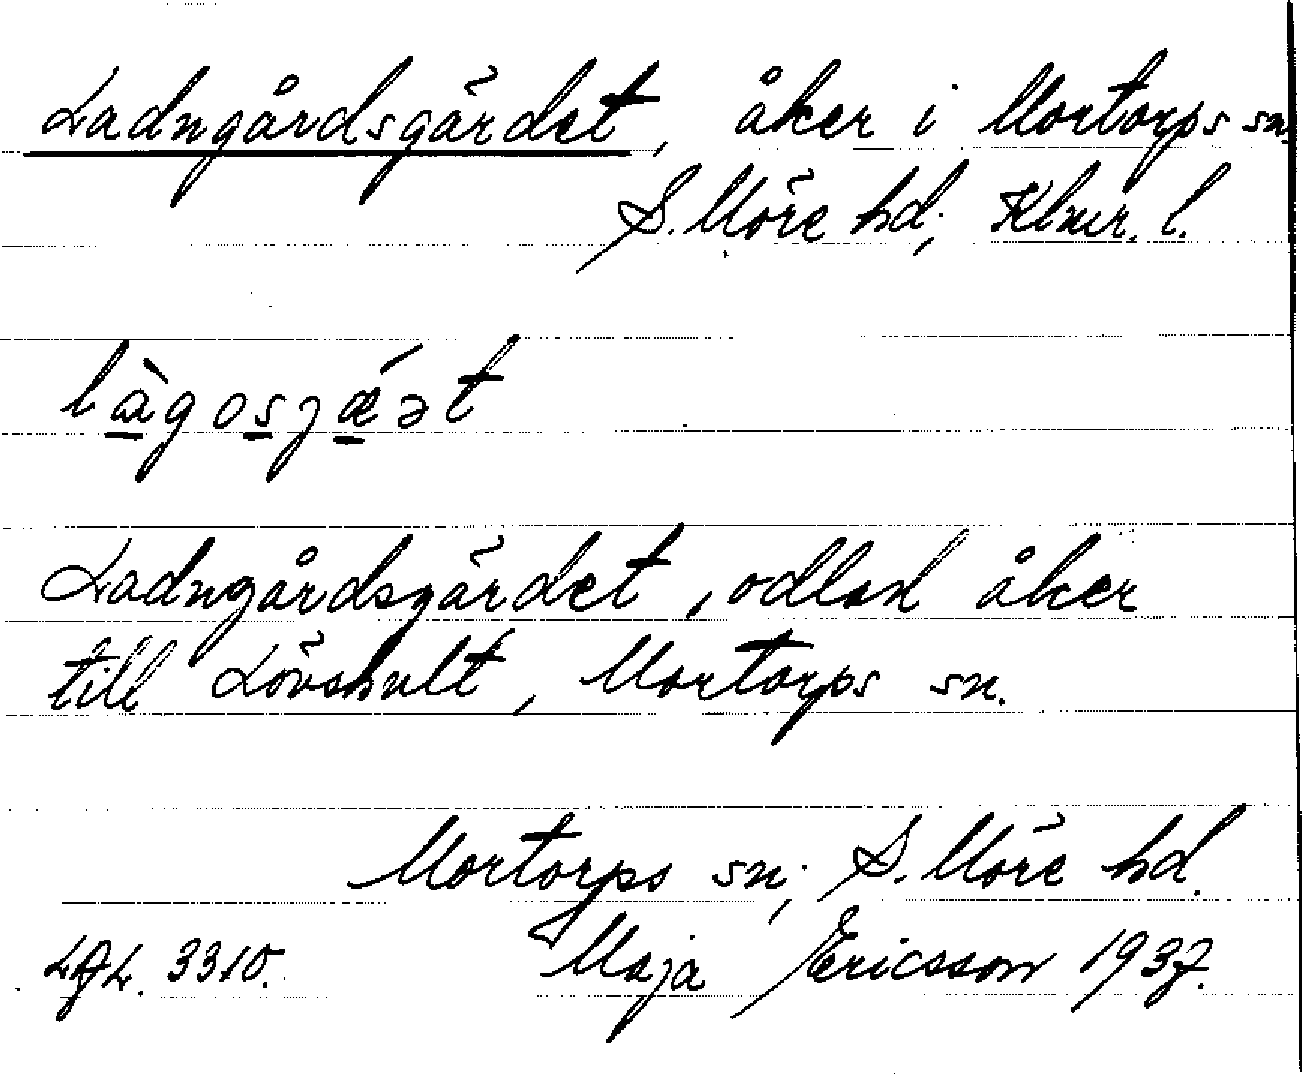 Ladngårdsgärdet, åker i Mortorps sn
S. Möre hd; Klmr. l.
làgosjǽət
Ladngårdsgärdet, odlad åker
till Lövshult, Mortorps sn.
Mortorps sn; S. Möre hd.
3310. Maja Ericsson 1937.